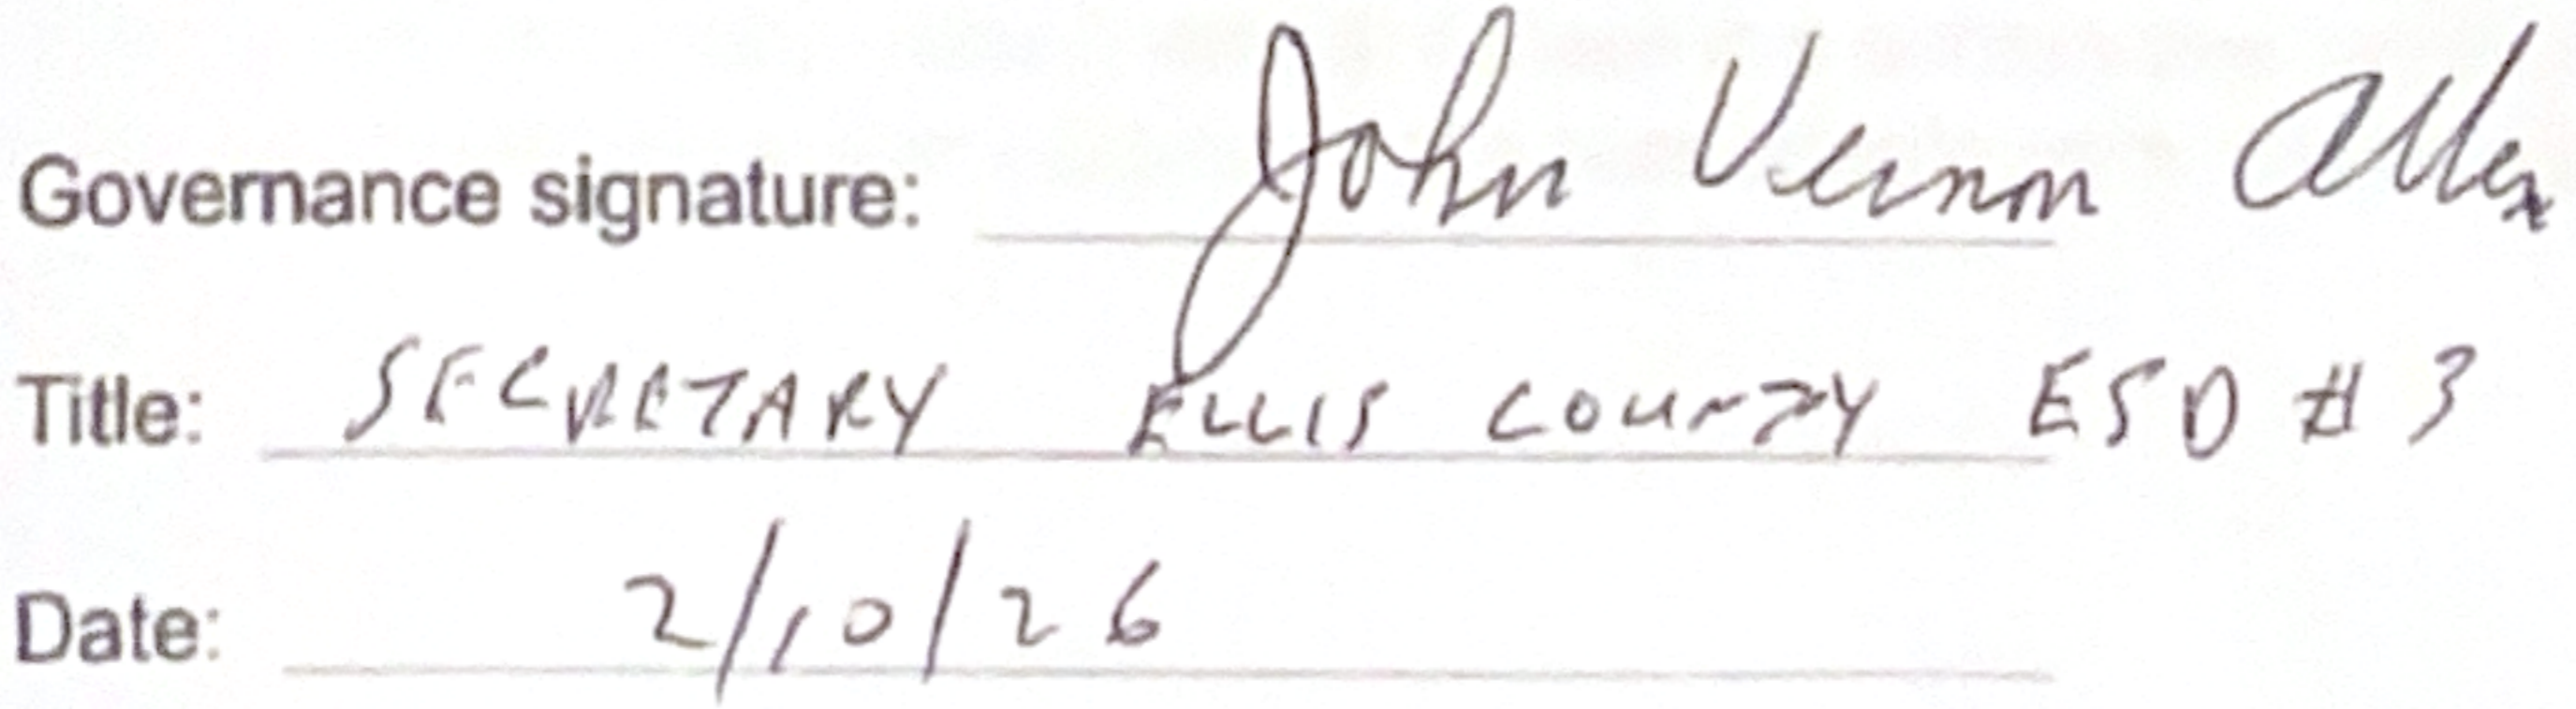 Governance signature: John Vernon Allen
Title: SECRETARY ELLIS COUNTY ESD # 3
Date: 2/10/26